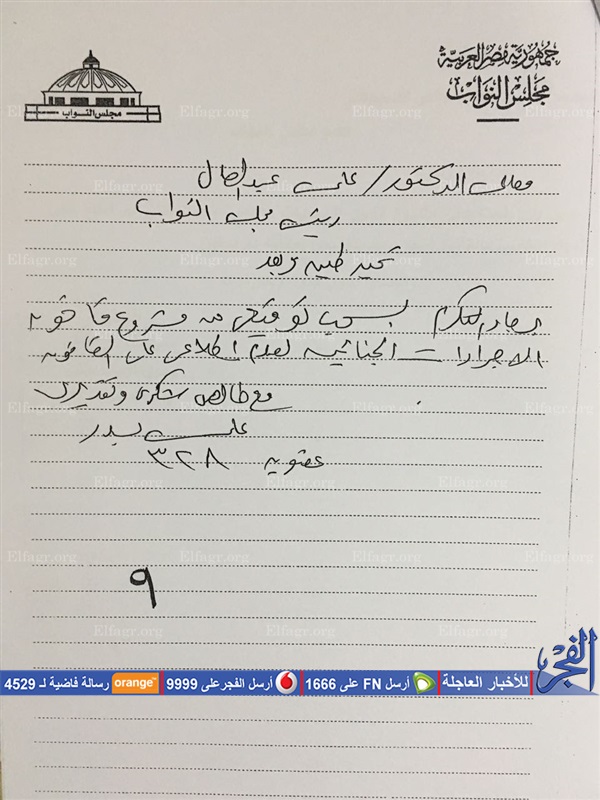 جمهورية مصر العربية
مجلس النواب
مجلس النواب
معالى الدكتور / على عبد العال
رئيس مجلس النواب
تحية طيبة وبعد
برجاء التكرم بسحب توقيعى من مشروع قانون
الاجراءات الجنائية لعدم اطلاعى على القانون
مع خالص شكرى وتقديرى
على بدر
عضوية ٣٢٨
٩
الفجر
للأخبار العاجلة
أرسل FN على 1666
أرسل الفجر على 9999
orange
رسالة فاضية لـ 4529
Elfagr.org